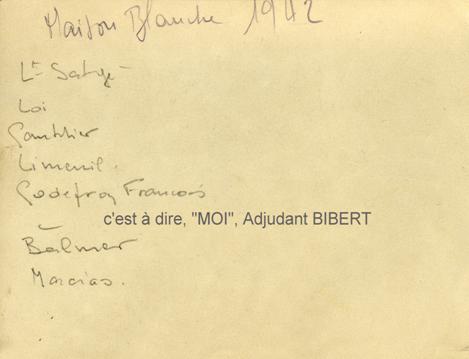 Maison Blanche 1942
Lt Satgé
Loi
Gauthier
Limeuil.
Godefroy Francois
c'est à dire, "MOI", Adjudant BIBERT
Bälmer
Macias.